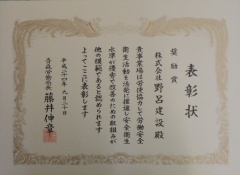 表彰状
奨励賞
株式会社 野呂建設 殿
貴事業場は労使協力して労働安全
衛生活動を活発に推進し安全衛生
水準が優秀で改善のための取組みが
他の模範であると認められます
よってここに表彰します
平成二十四年 九月二十日
青森労働局長 藤井伸章